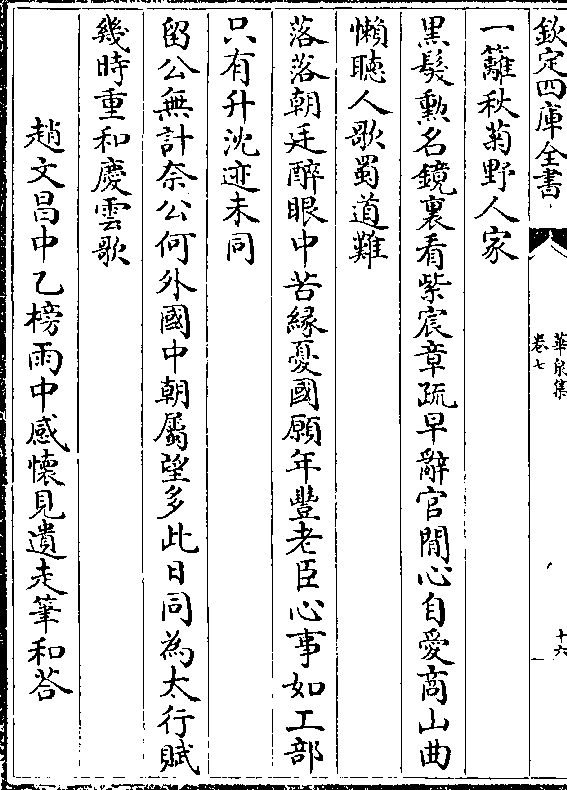 欽定四庫全書
華泉集
卷七
十六
一籬秋菊野人家
黑髮勲名鏡裏看紫宸章疏早辭官閒心自愛商山曲
懶聴人歌蜀道難
落落朝廷醉眼中苦緣憂國願年豐老臣心事如工部
只有升沈迹未同
留公無計奈公何外國中朝屬望多此日同為大行賦
幾時重和慶雲歌
趙文昌中乙榜雨中感懷見遺走筆和荅